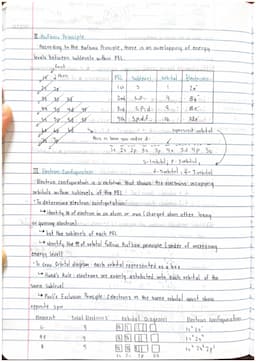 II. Aufbau Principle
According to the Aufbau Principle, there is an overlapping of energy
levels between sublevels within PEL.
start
here
PEL Sublevel orbital Electrons
1st S 1 2e⁻
2nd S,P 4 8e⁻
3rd S,P,d 9 18e⁻
4th S,p,d,f 16 32e⁻
1s
2s 2p
3s 3p 3d
4s 4p 4d 4f
5s 5p 5d 5f
6s 6p 6d
7s 7p
this is how you order it:
1s 2s 2p 3s 3p 4s 3d 4p 5s
S-1 orbital, P-3 orbital,
d-5 orbital, f-7 orbital
III. Electron Configuration
Electron configuration is a notation that shows the electrons occupying
orbitals within sublevels of the PEL
To determine electron configuration:
↳ Identify # of electron in an atom or ion (charged atom either losing
or gaining electron)
↳ List the sublevels of each PEL
↳ Identify the # of orbital follow Aufbau principle (order of increasing
energy level)
To draw Orbital diagram: each orbital represented as a box
↳ Hund's Rule: electrons are evenly distributed into each orbital of the
same sublevel
↳ Pauli's Exclusion Principle: 2 electrons in the same orbital must show
opposite spin
Element Total Electrons Orbital Diagram Electron configuration
1s² 2s¹
1s² 2s²
B 5 1s² 2s² 2p¹
1s 2s 2p